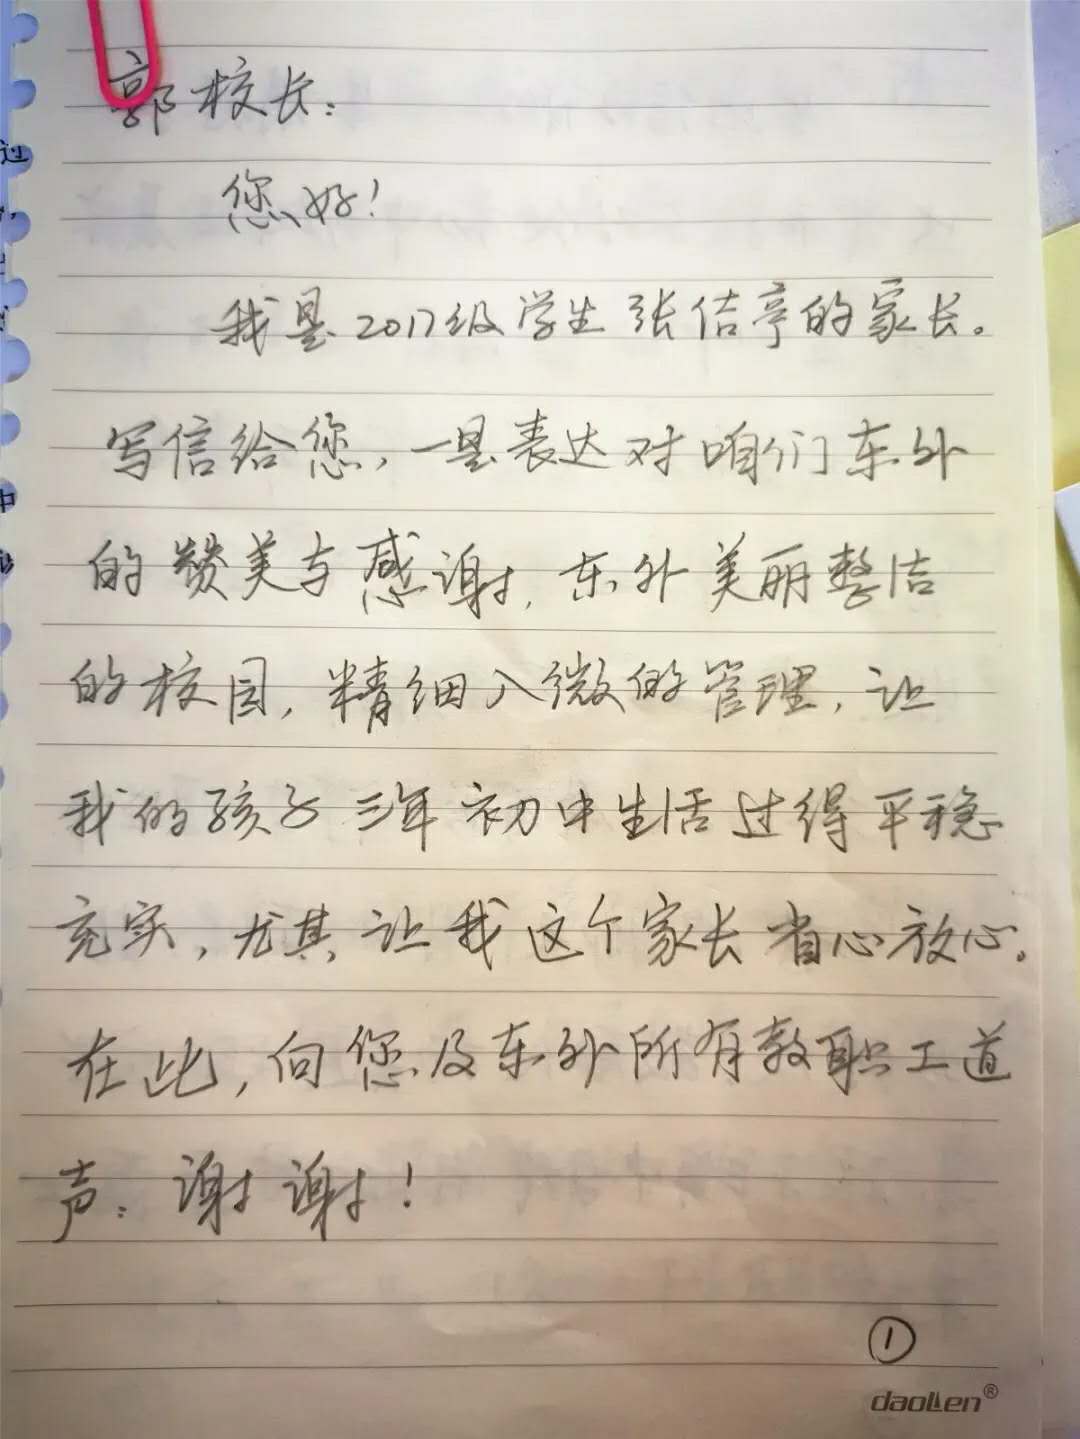 郭校长：
您好！
我是2017级学生张佶亭的家长。
写信给您，一是表达对咱们东外
的赞美与感谢，东外美丽整洁
的校园，精细入微的管理，让
我的孩子三年初中生活过得平稳
充实，尤其让我这个家长省心放心。
在此，向您及东外所有教职工道
声：谢谢！
①
daoLen®
过
中